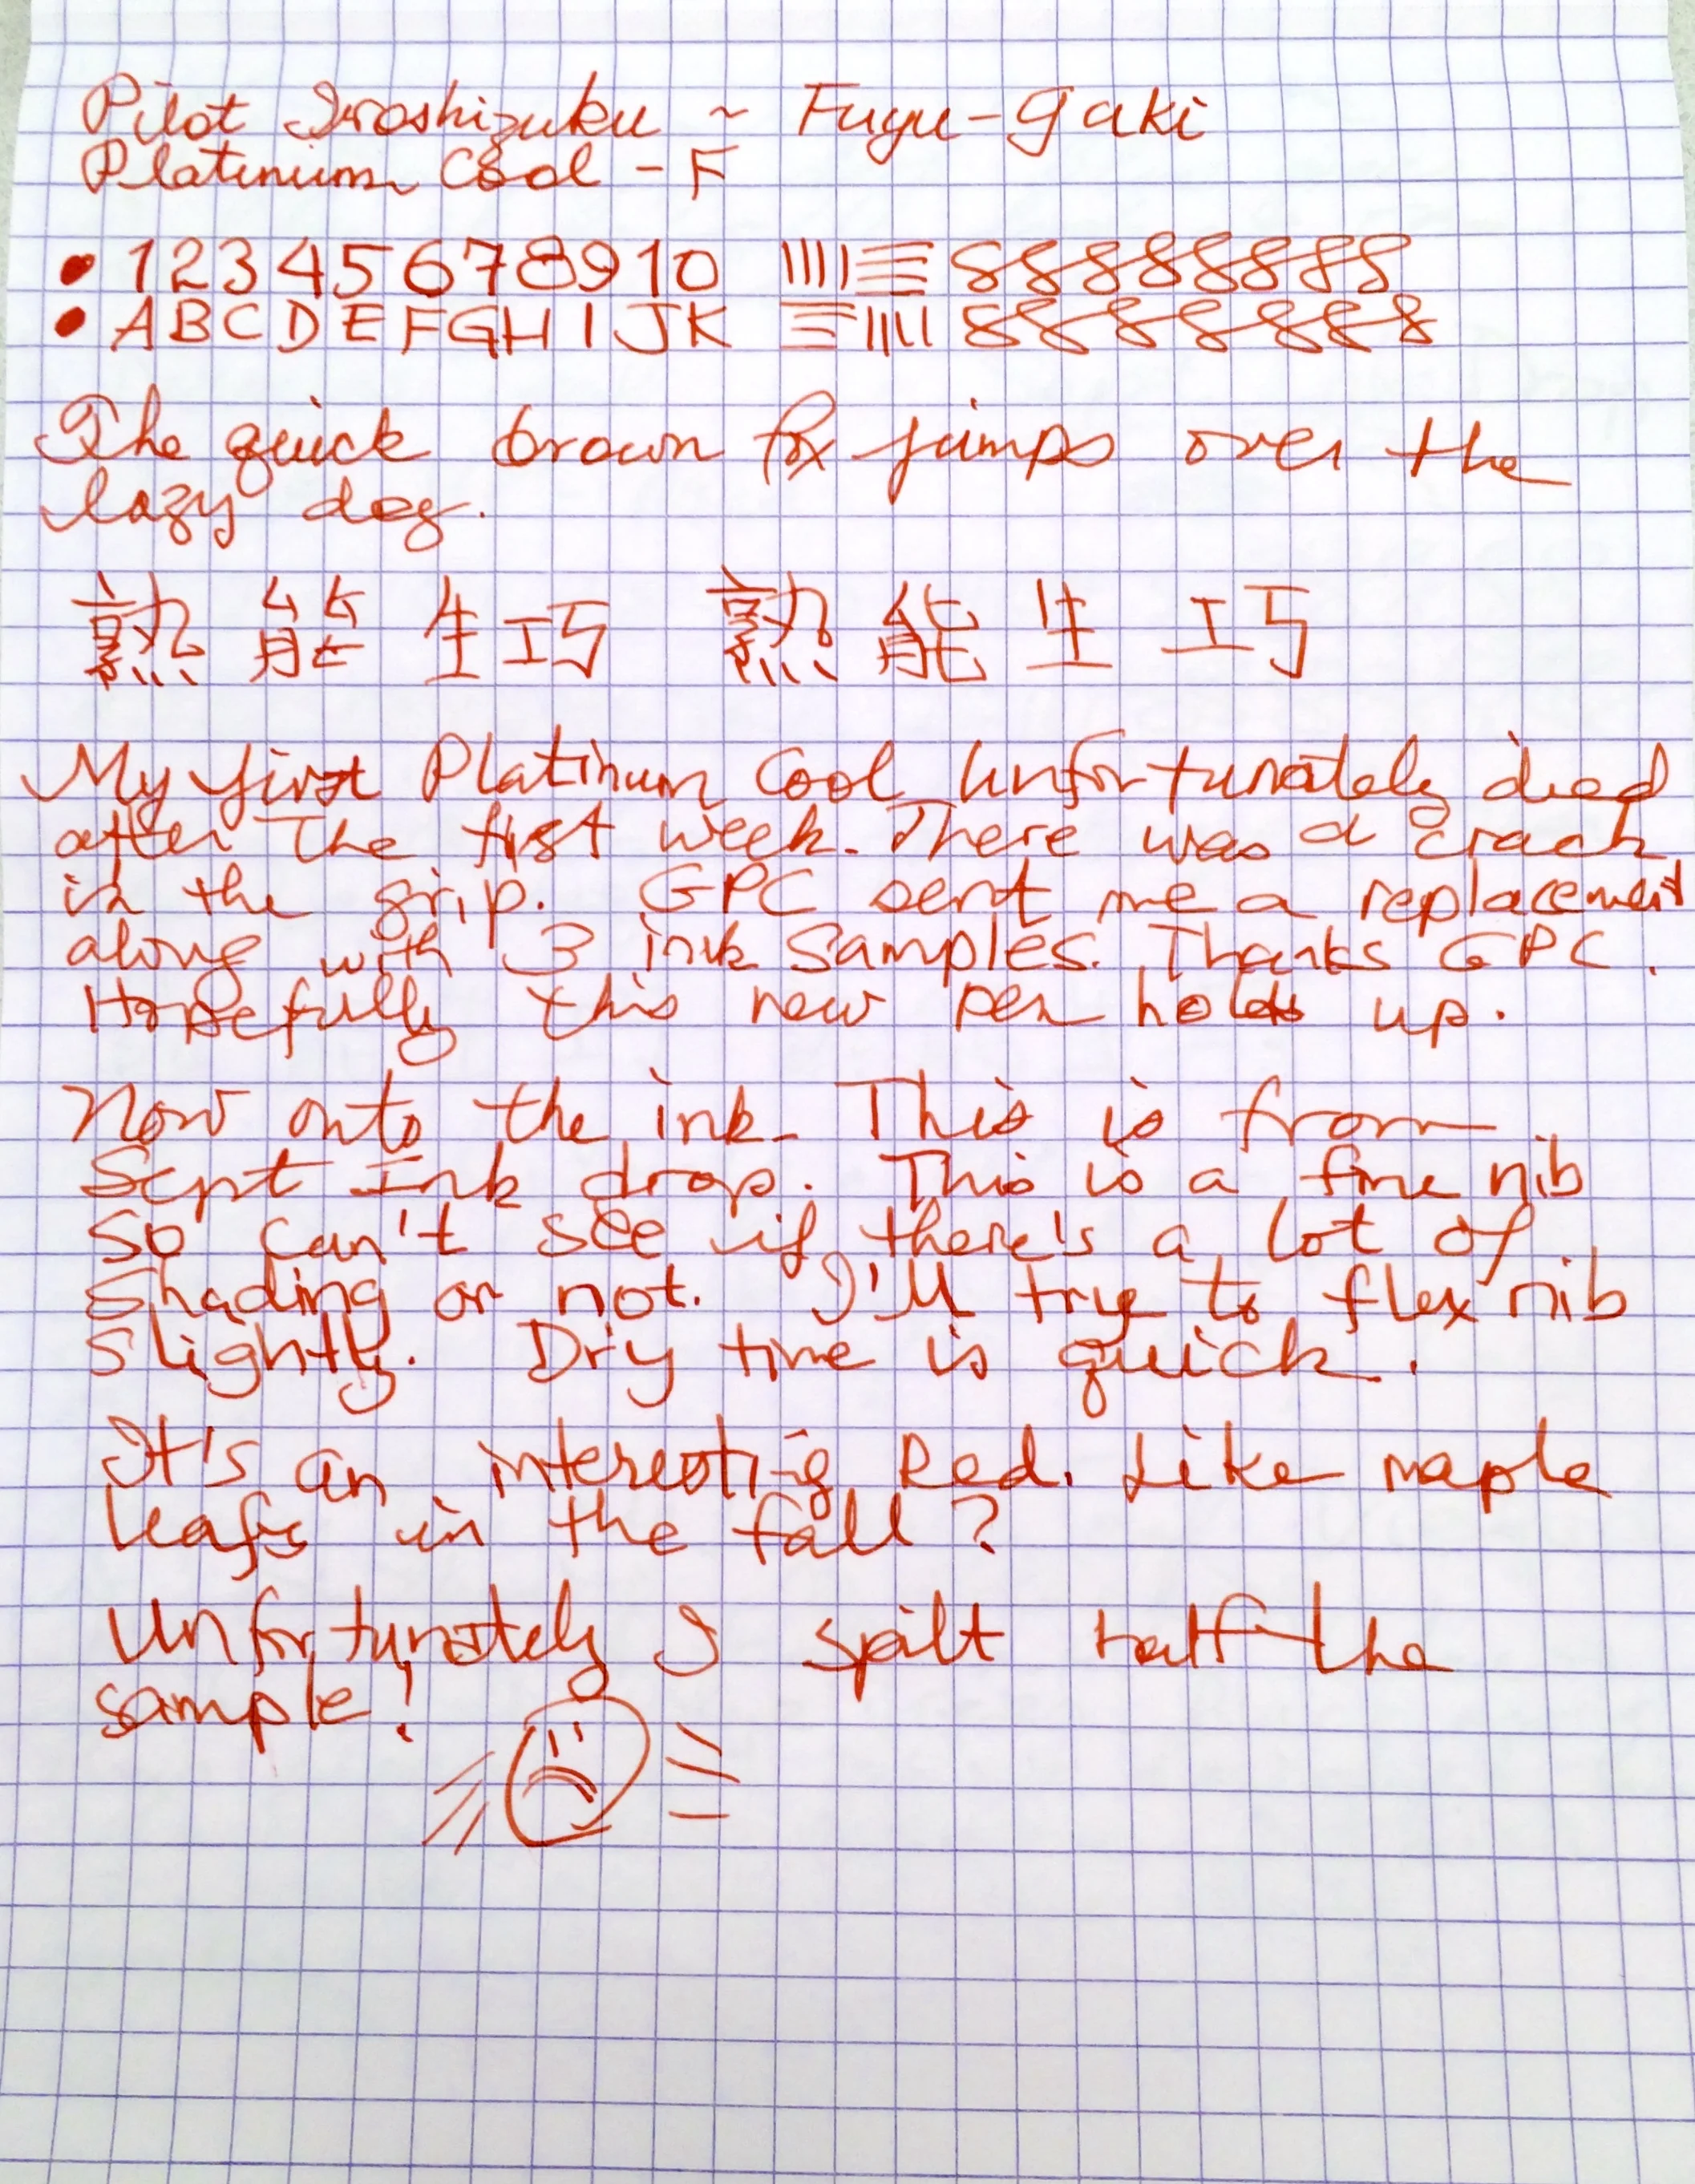 Pilot Iroshizuku ~ Fuyu-gaki
Platinum Cool - F
• 1 2 3 4 5 6 7 8 9 10
• A B C D E F G H I J K
The quick brown fox jumps over the
lazy dog.
熟能生巧 熟能生巧
My first Platinum Cool unfortunately died
after the first week. There was a crack
in the grip. GPC sent me a replacement
along with 3 ink samples. Thanks GPC.
Hopefully this new pen holds up.
Now onto the ink. This is from
Sept Ink drop. This is a fine nib
so can't see if there's a lot of
shading or not. I'll try to flex nib
slightly. Dry time is quick.
It's an interesting Red. Like maple
leafs in the fall?
Unfortunately I spilt half the
sample!